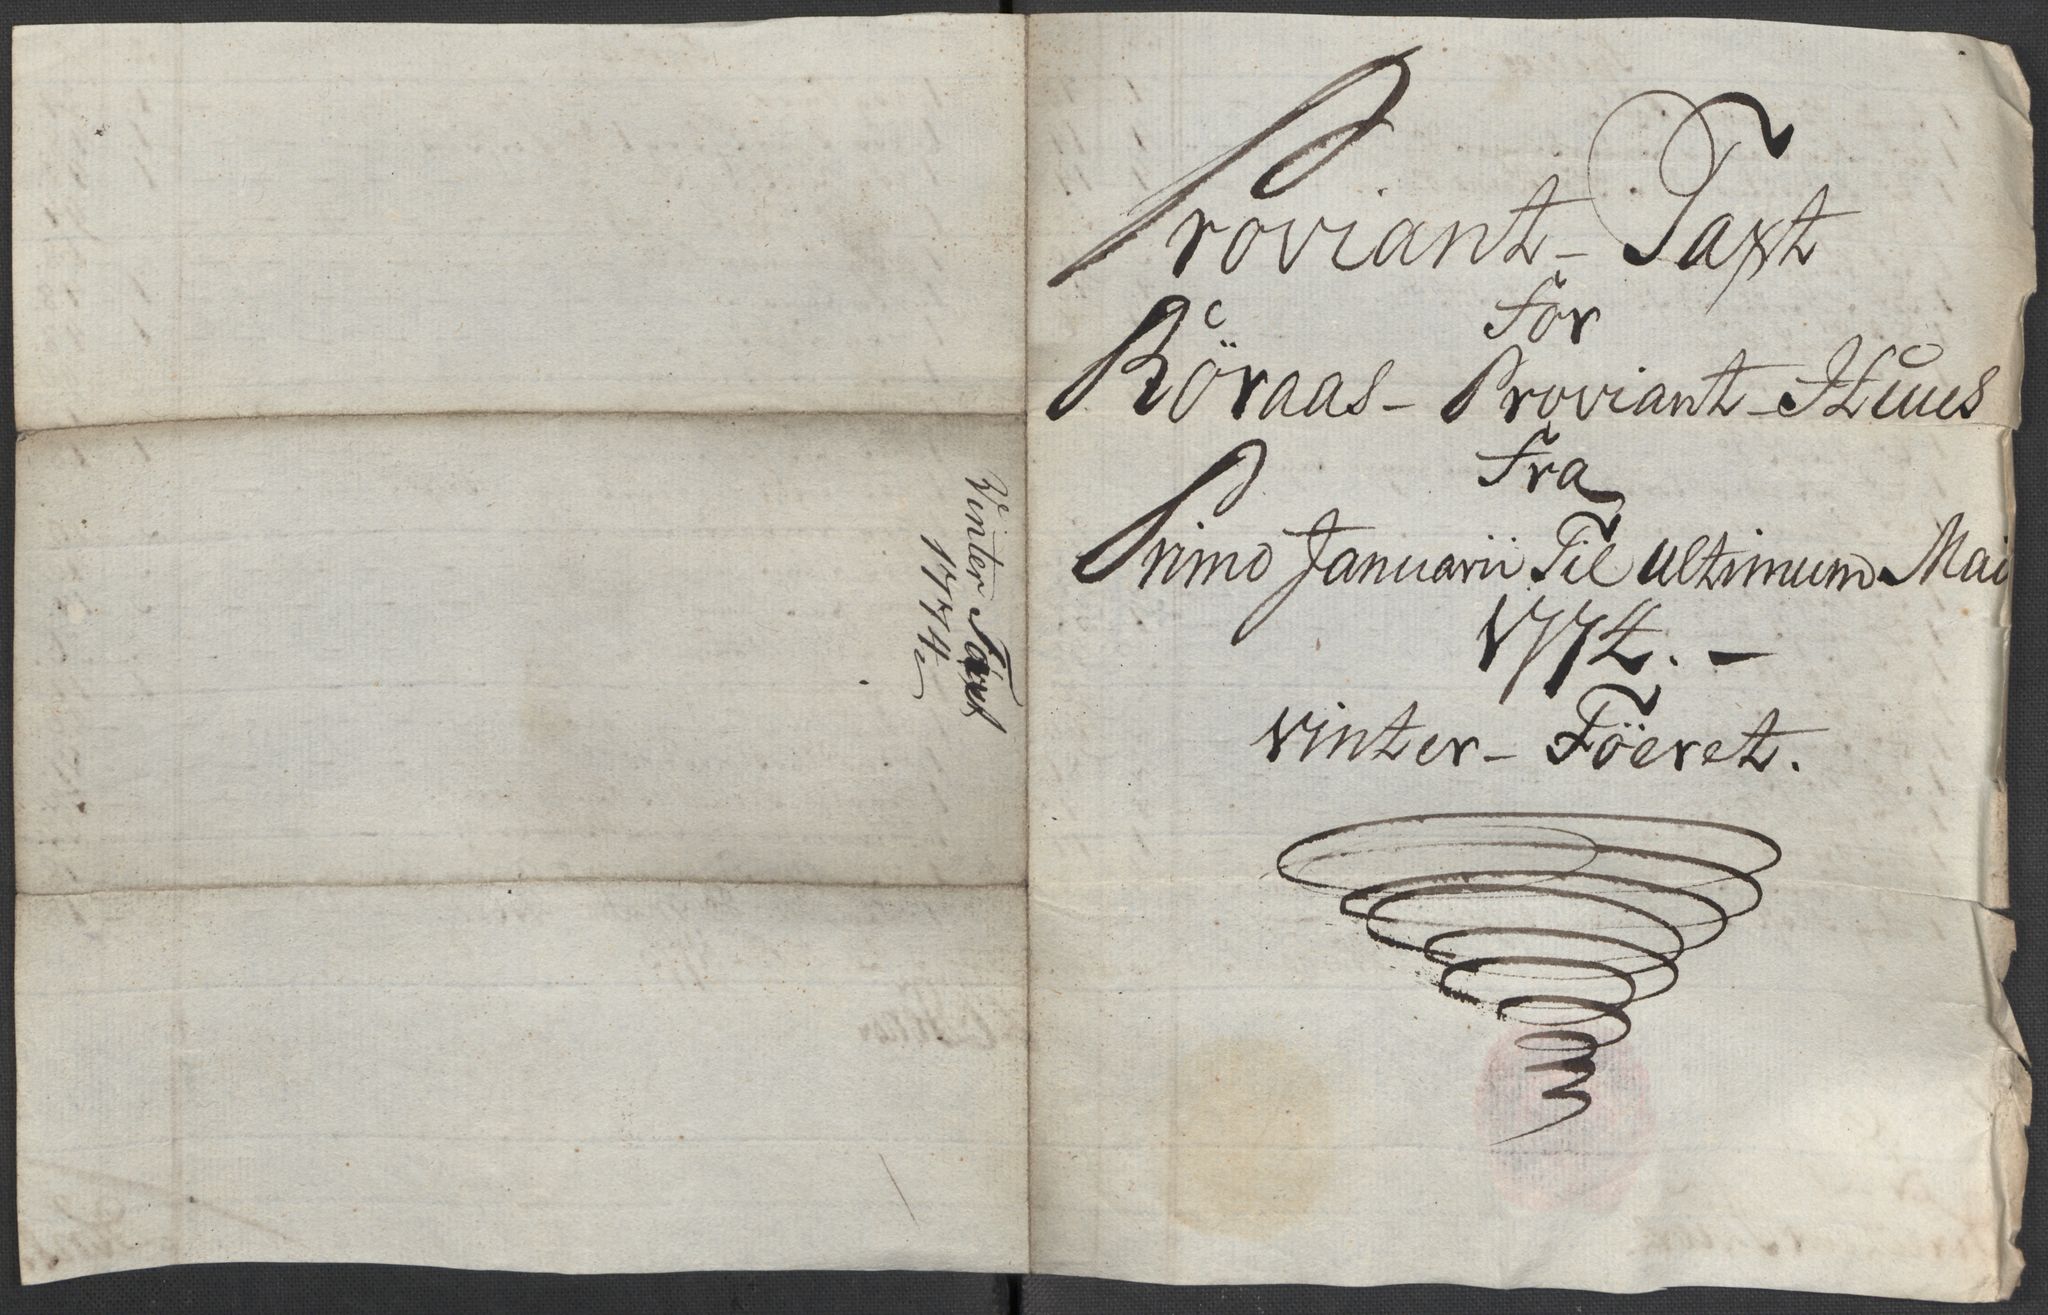 Vinter Taxt
1774
Proviant-Taxt
for
Röraas- Proviant-Huus
fra
Primo Januarii Til ultimum Mai
1774. -
vinter- Föeret.